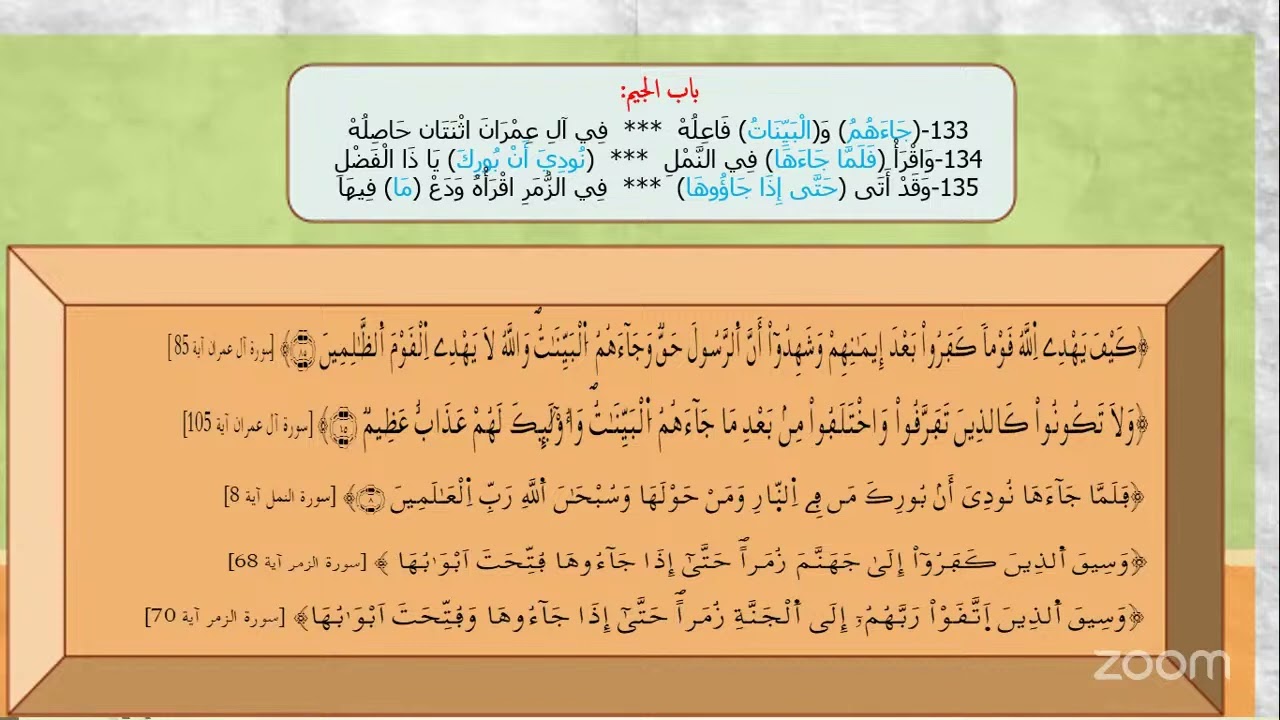 باب الجيم:
133-(جَاءَهُمُ) وَ(الْبَيِّنَاتُ) فَاعِلُهْ *** فِي آلِ عِمْرَانَ اثْنَتَان حَاصِلُهْ
134-وَاقْرَأْ (فَلَمَّا جَاءَهَا) فِي النَّمْلِ *** (نُودِيَ أَنْ بُورِكَ) يَا ذَا الْفَضْلِ
135-وَقَدْ أَتَى (حَتَّى إِذَا جَاؤُوهَا) *** فِي الزُّمَرِ اقْرَأْهُ وَدَعْ (مَا) فِيهَا
﴿كَيْفَ يَهْدِے اِ۬للَّهُ قَوْماٗ كَفَرُواْ بَعْدَ إِيمَٰنِهِمْ وَشَهِدُوٓاْ أَنَّ اَ۬لرَّسُولَ حَقّٞ وَجَآءَهُمُ اُ۬لْبَيِّنَٰتُۖ وَاللَّهُ لَا يَهْدِے اِ۬لْقَوْمَ اَ۬لظَّٰلِمِينَ ٨٥﴾ [سورة آل عمران آية 85]
﴿وَلَا تَكُونُواْ كَالذِينَ تَفَرَّقُواْ وَاخْتَلَفُواْ مِنۢ بَعْدِ مَا جَآءَهُمُ اُ۬لْبَيِّنَٰتُۖ وَأُوْلَٰٓئِكَ لَهُمْ عَذَابٌ عَظِيمٞ﴾ [سورة آل عمران آية 105]
﴿فَلَمَّا جَآءَهَا نُودِيَ أَنۢ بُورِكَ مَن فِے اِ۬لنّ۪ارِ وَمَنْ حَوْلَهَا وَسُبْحَٰنَ اَ۬للَّهِ رَبِّ اِ۬لْعَٰلَمِينَ ٨﴾ [سورة النمل آية 8]
﴿وَسِيقَ اَ۬لذِينَ كَفَرُوٓاْ إِلَىٰ جَهَنَّمَ زُمَراًۖ حَتَّىٰٓ إِذَا جَآءُوهَا فُتِّحَتَ اَبْوَٰبُهَا ﴾ [سورة الزمر آية 68]
﴿وَسِيقَ اَ۬لذِينَ اَ۪تَّقَوْاْ رَبَّهُمُۥٓ إِلَى اَ۬لْجَنَّةِ زُمَراًۖ حَتَّىٰٓ إِذَا جَآءُوهَا وَفُتِّحَتَ اَبْوَٰبُهَا﴾ [سورة الزمر آية 70]
zoom